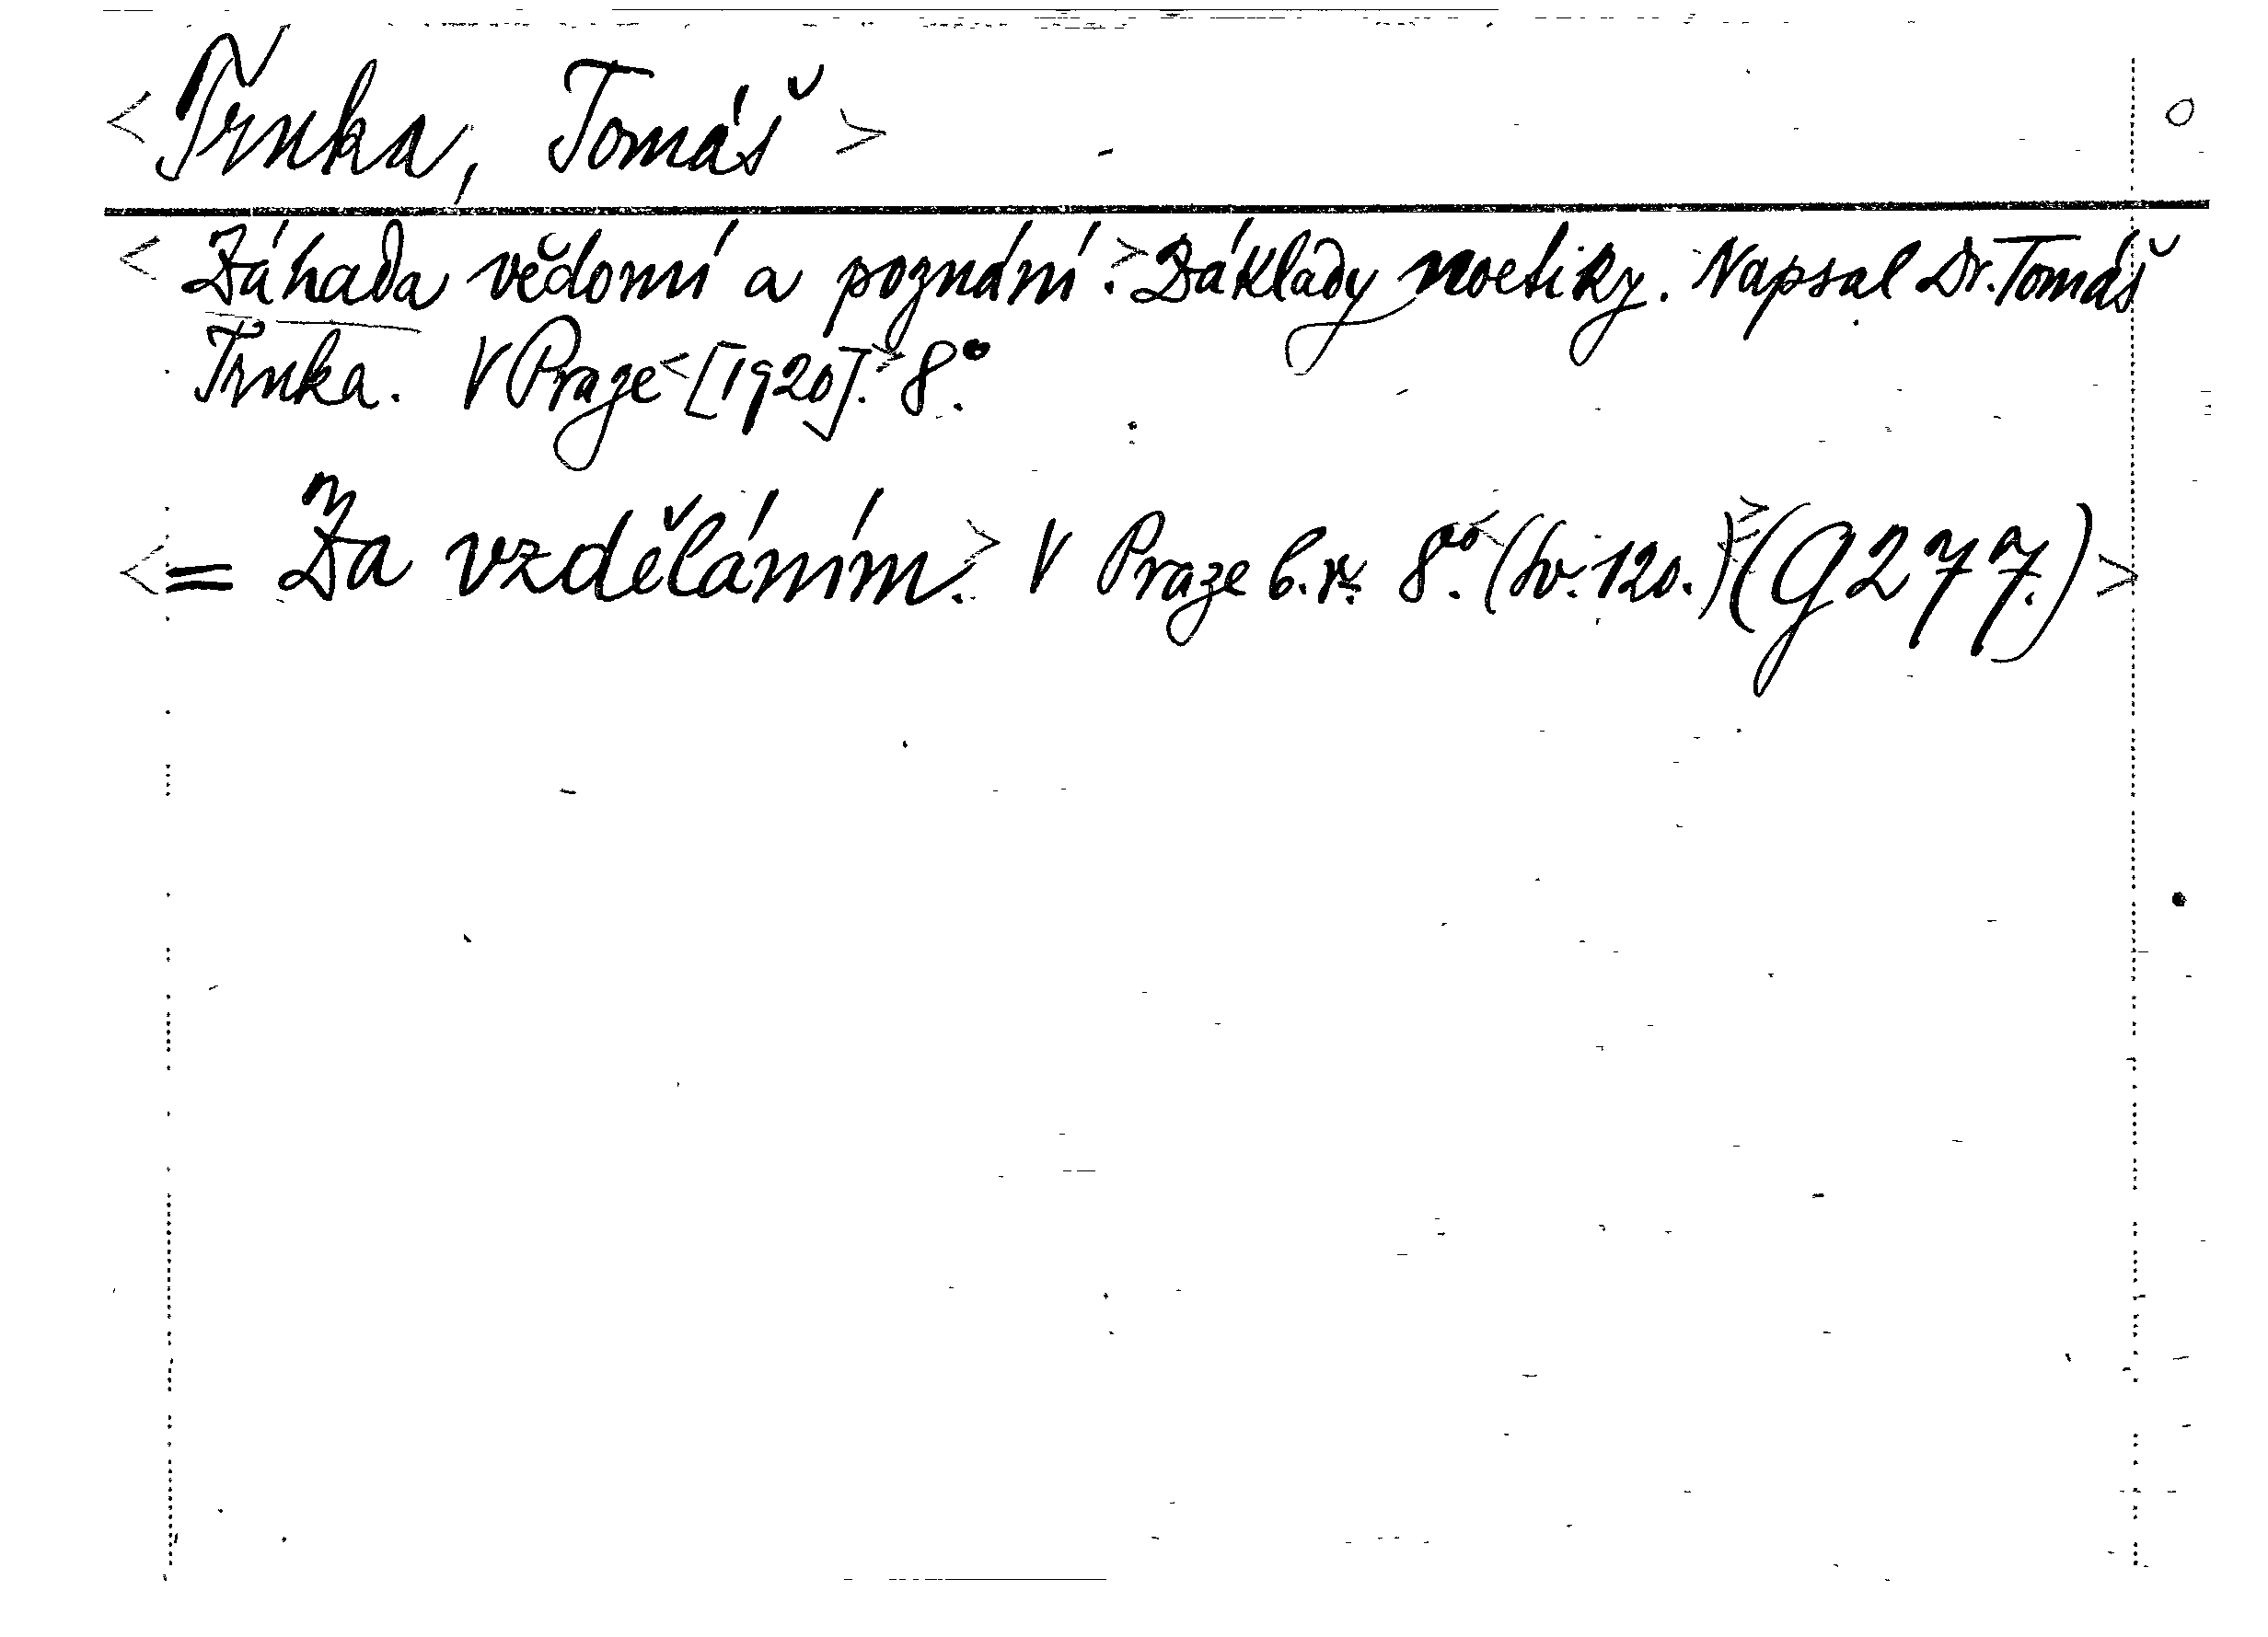 <Trnka, Tomáš>
<Záhada vědomí a poznání.> Základy noetiky. Napsal Dr. Tomáš
Trnka. V Praze <[1920].> 8°.
<= Za vzděláním.> V Praze b. r. 8°. <(Sv. 120.)> (G 277.)>